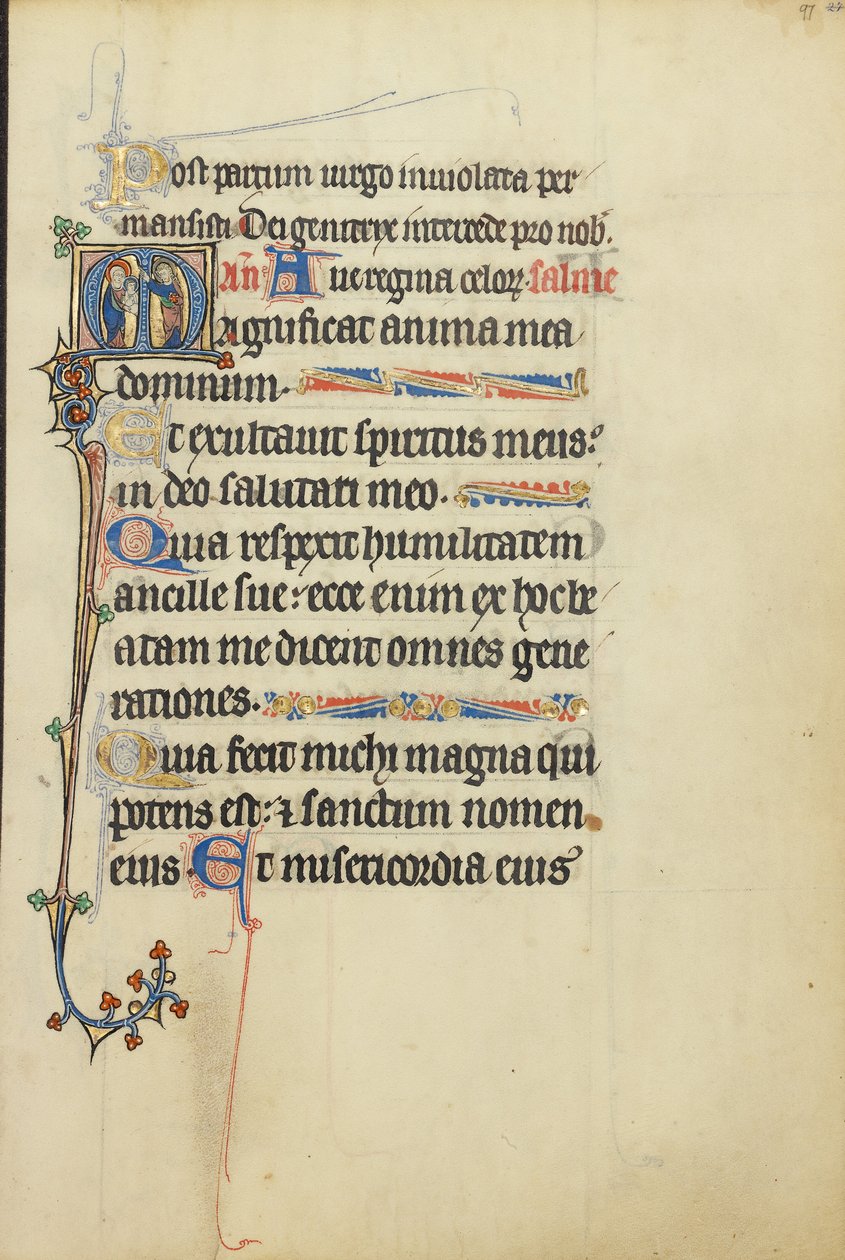 97 27
Post partum uirgo inuiolata per
mansisti Dei genitrix intercede pro nob.
An Aue regina celoꝝ. salme
Magnificat anima mea
dominum.
Et exultauit spiritus meus:
in deo salutari meo.
Quia respexit humilitatem
ancille sue: ecce enim ex hoc be
atam me dicent omnes gene
rationes.
Quia fecit michi magna qui
potens est: ⁊ sanctum nomen
eius. Et misericordia eius